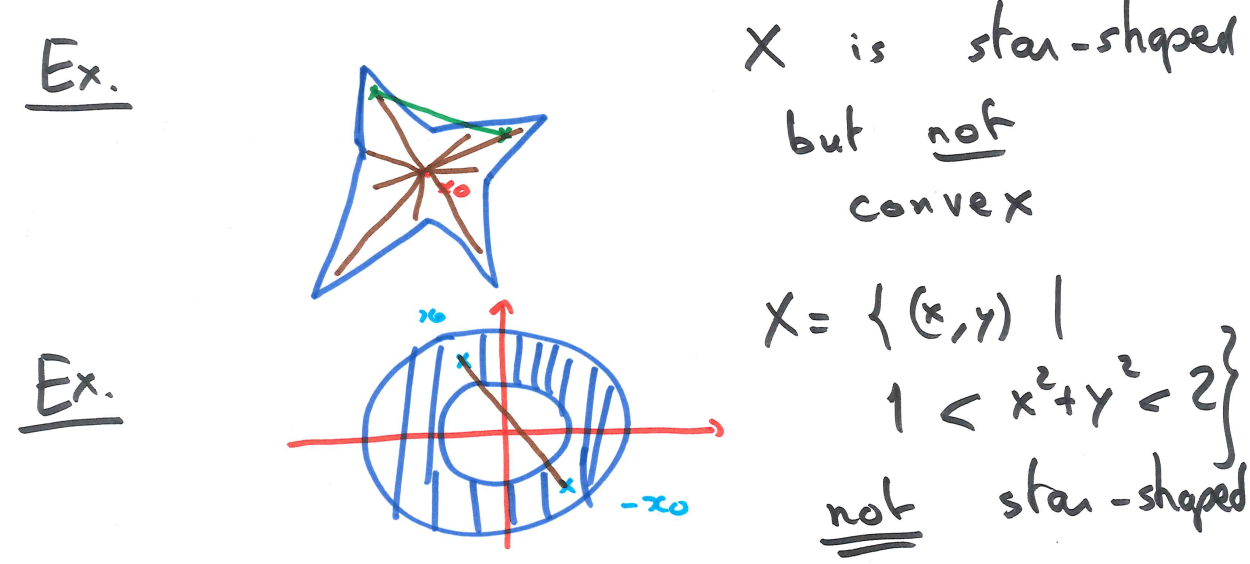 Ex.
X is star-shaped
but not
convex
x0
Ex.
X = { (x,y) |
1 < x² + y² < 2 }
not star-shaped
x0
-x0